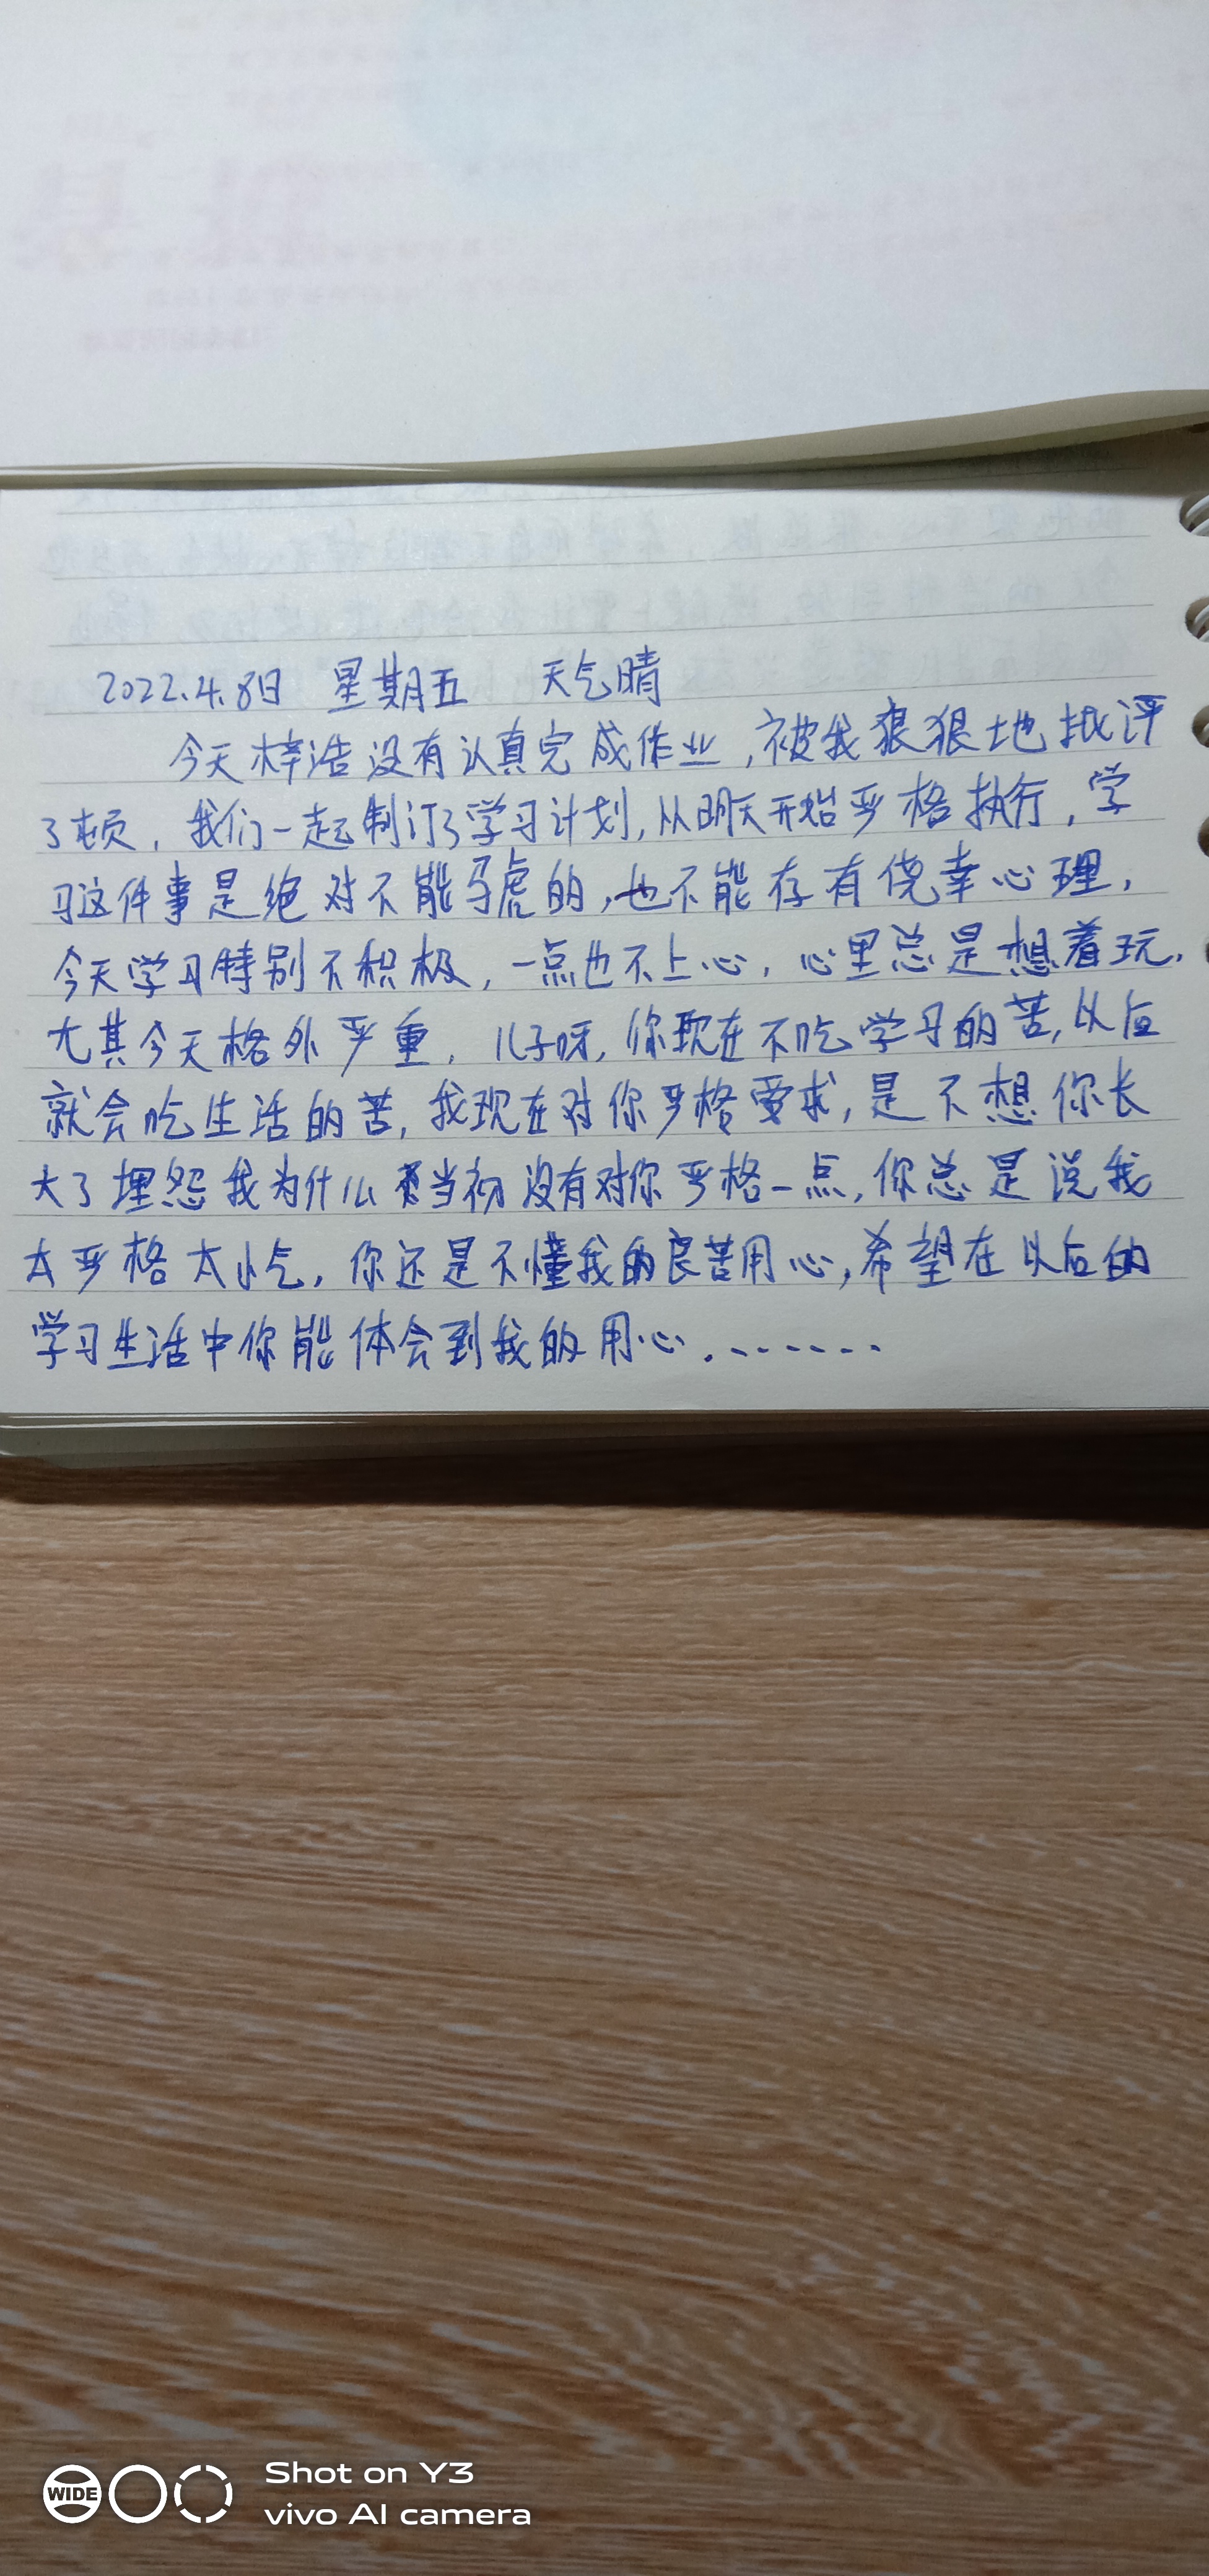 2022.4.8日 星期五 天气晴
今天梓浩没有认真完成作业,被我狠狠地批评
了顿,我们一起制订了学习计划,从明天开始严格执行,学
习这件事是绝对不能马虎的,也不能存有侥幸心理,
今天学习特别不积极,一点也不上心,心里总是想着玩,
尤其今天格外严重,儿子呀,你现在不吃学习的苦,以后
就会吃生活的苦,我现在对你严格要求,是不想你长
大了埋怨我为什么当初没有对你严格一点,你总是说我
太严格太小气,你还是不懂我的良苦用心,希望在以后的
学习生活中你能体会到我的用心.......
WIDE
Shot on Y3
vivo AI camera